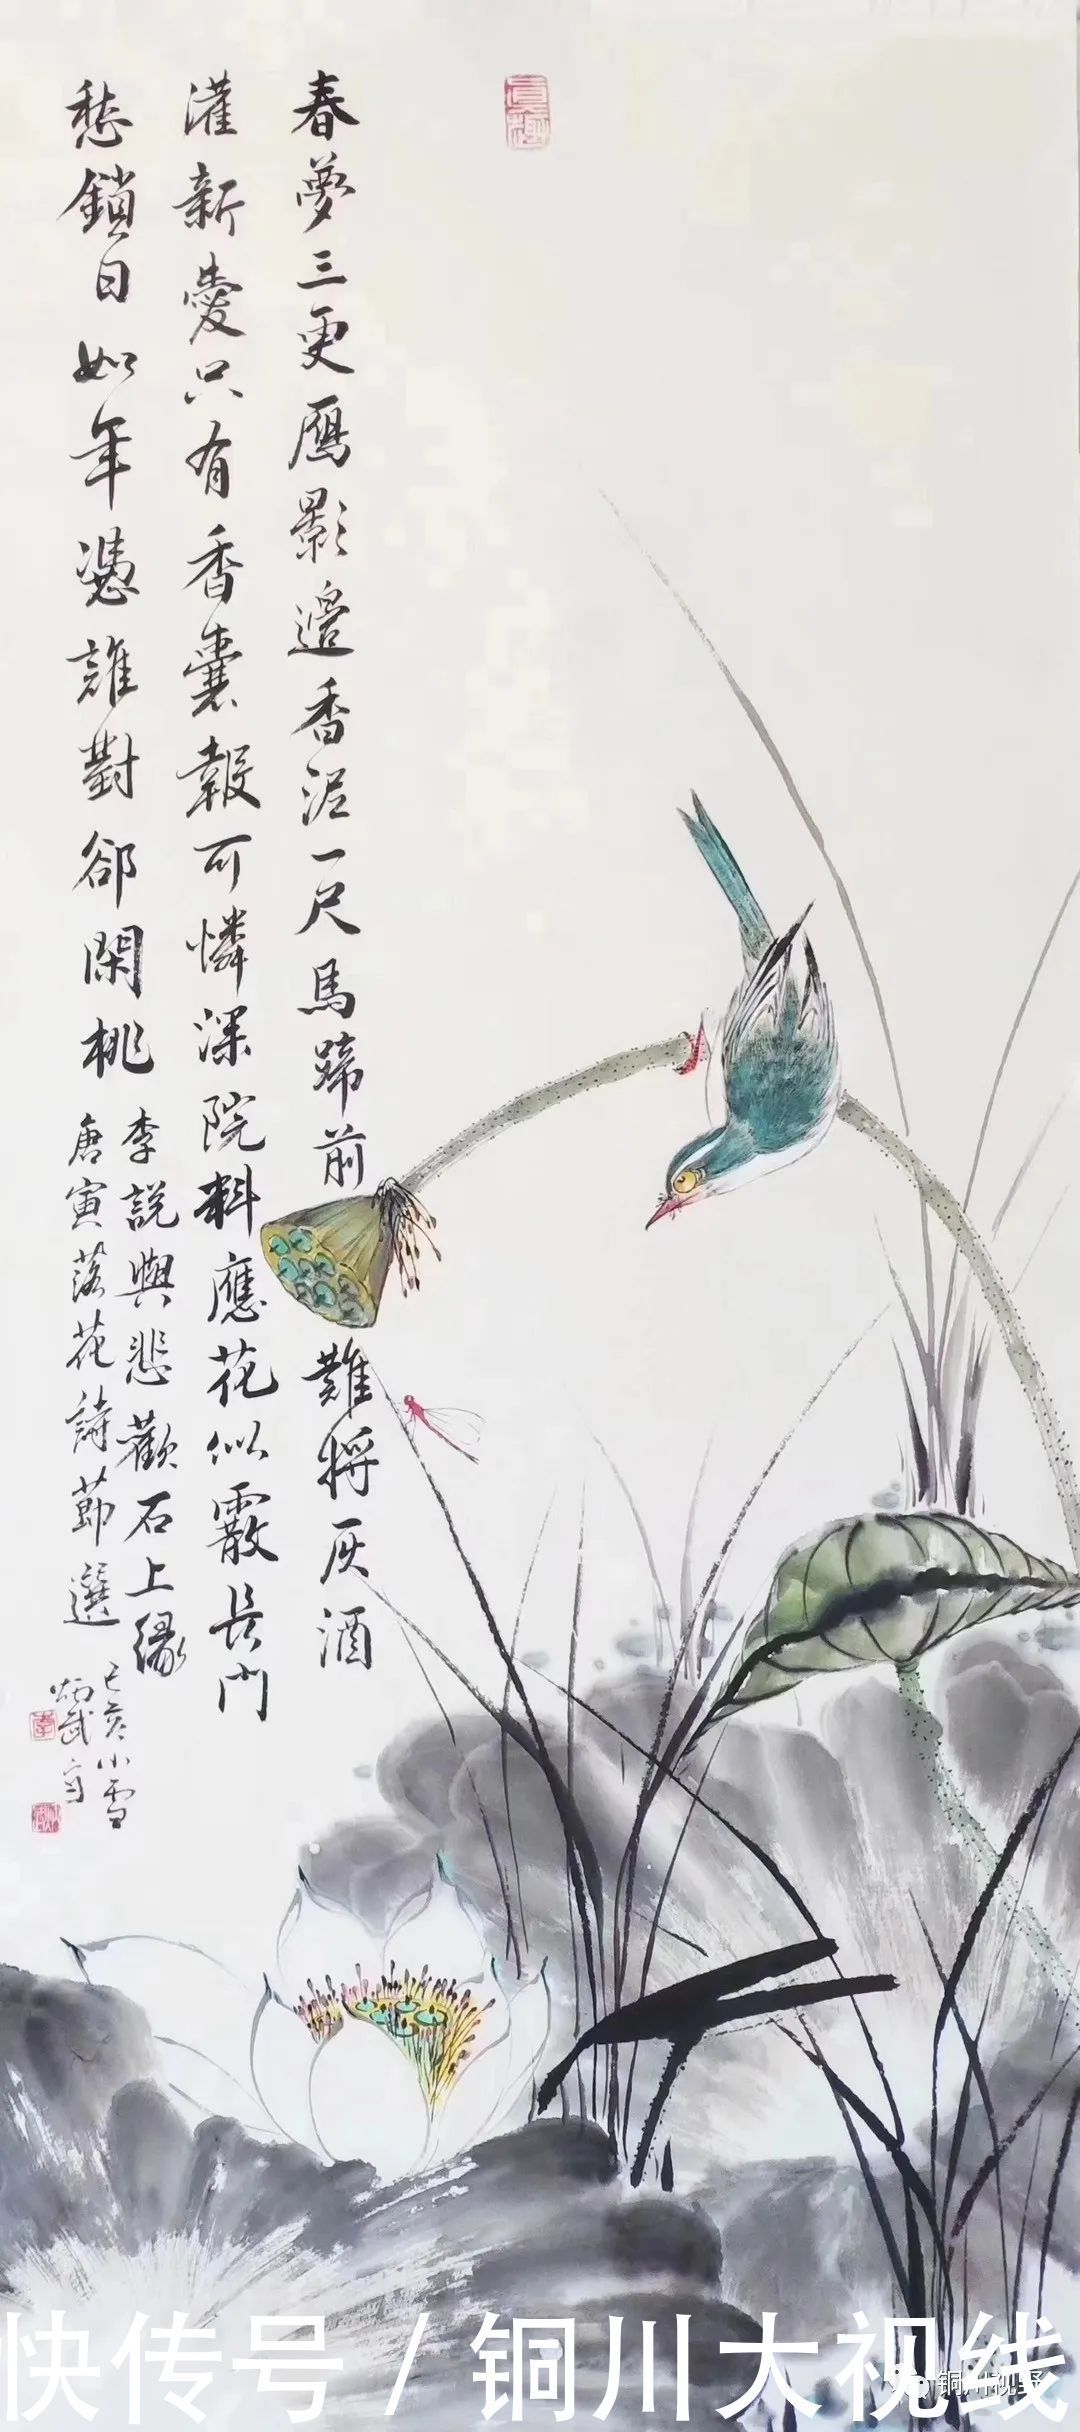 春夢三更鴈影邉香泥一尺馬蹄前難将灰酒
灌新愛只有香囊報可憐深院料應花似霰長門
愁鎖日如年憑誰對卻閑桃
李説與悲歡石上緣
唐寅落花詩節選
己亥小雪
炳武
快传号/铜川大视线
铜川视野